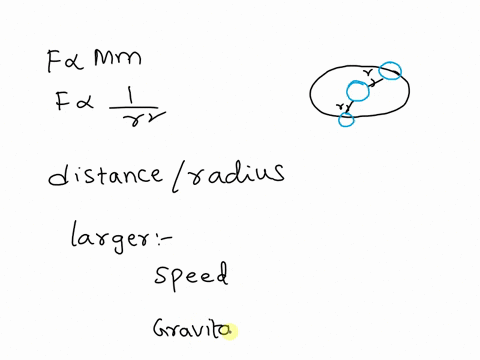 F∝ Mm
F∝ 1/r²
r
r
distance/radius
larger:-
Speed
Gravita